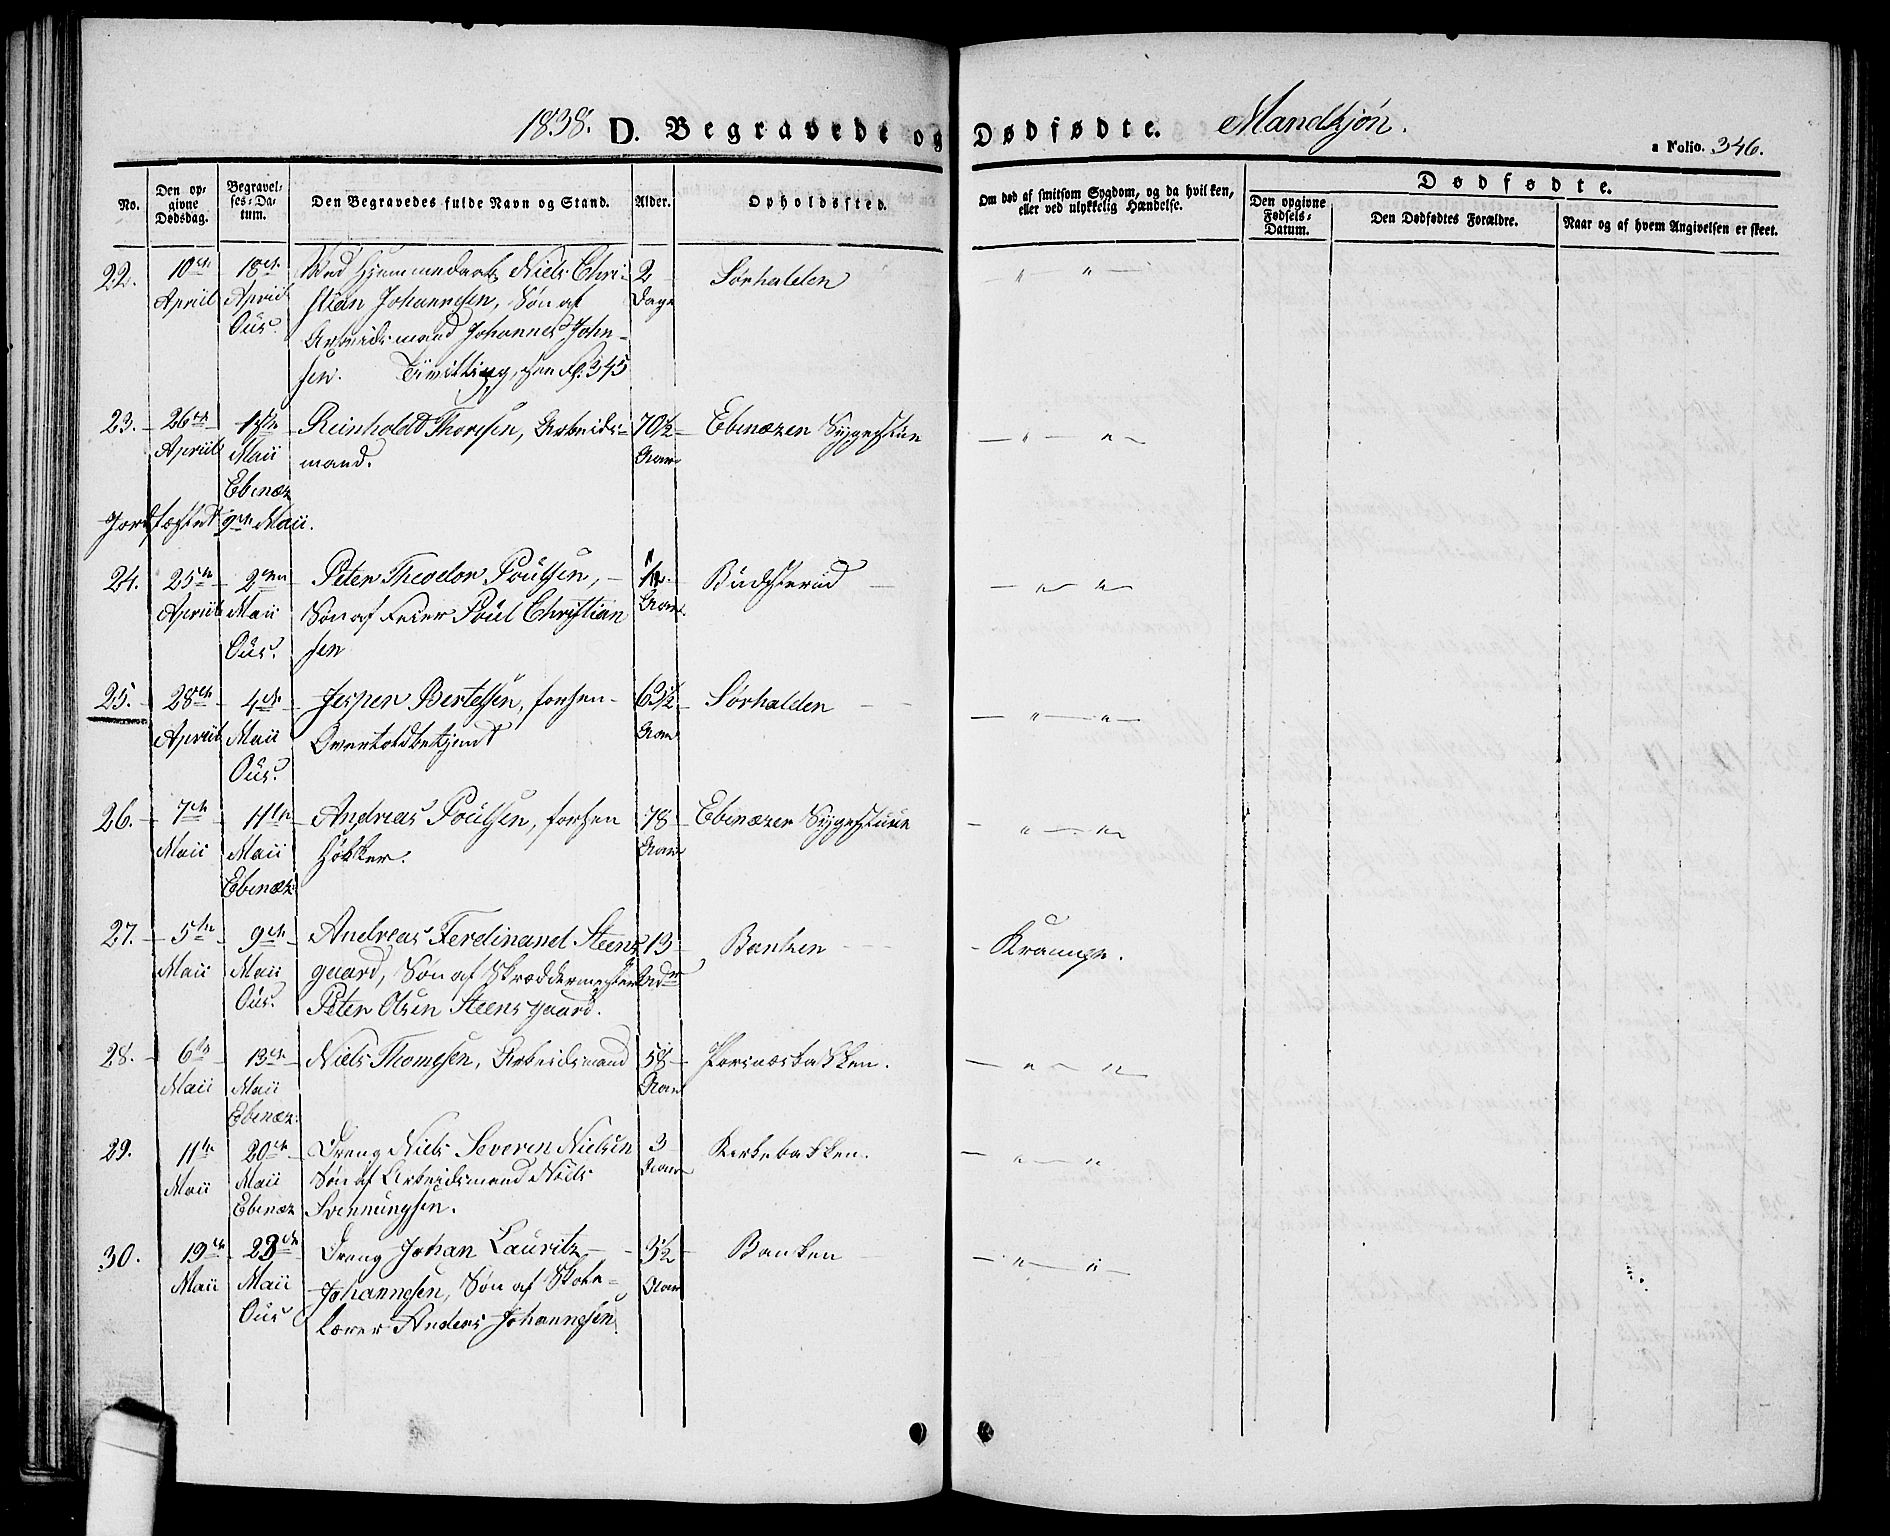 1838. D. Begravede og Dødfødte. Mandkjøn.
a Folio. 346.
No.
Den opgivne Dødsdag.
Begravelses-Datum.
Den Begravedes fulde Navn og Stand.
Alder.
Opholdssted.
Om død af smitsom Sygdom, og da hvilken, eller ved ulykkelig Hændelse.
Dødfødte.
Den opgivne Fødsels-Datum.
Den Dødfødtes Forældre.
Naar og af hvem Angivelsen er skeet.
22. 10de 18de Ved Hjemmedaab Niels Chri- 2 Sørhalden " "
April April stian Johannesen, Søn af Dage
Ous. Arbeidsmand Johannes John-
sen. Tvilling, see fol. 345
23. 26de 1ste Reinholdt Thoresen, Arbeids- 70½ Ebenezer Sygestue " "
April Maii mand. Aar
Ebenez
Jordfæstet 9de Maii.
24. 25de 2den Peter Theodor Poulsen, Budsterud " "
April Maii Søn af Feier Poul Christian Aar.
Ous. sen
25. 28de 4de Jesper Bertelsen, forhen 63½ Sørhalden " "
April Maii Overtoldbetjent Aar
Ous.
26. 7de 11te Andreas Poulsen, forhen 78 Ebenezer Sygestue " "
Maii Maii Høker. Aar
Ebenez.
27. 5te 9de Andreas Ferdinand Steens 13 Banken Krampe.
Maii Maii gaard, Søn af Skræddermester
Ous. Peter Olsen Steensgaard.
28. 6te 13de Niels Thomesen, Arbeidsmand 58 Porsnesbakken. " "
Maii Maii Aar
Ebenez.
29. 11te 20de Dreng Niels Severin Nielsen 3 Kirkebakken. " "
Maii Maii Søn af Arbeidsmand Niels Aar
Ebenez Svenningsen.
30. 19de 23de Dreng Johan Lauritz 3½ Banken " "
Maii Maii Johannesen, Søn af Skole- Aar
Ous lærer Anders Johannesen.